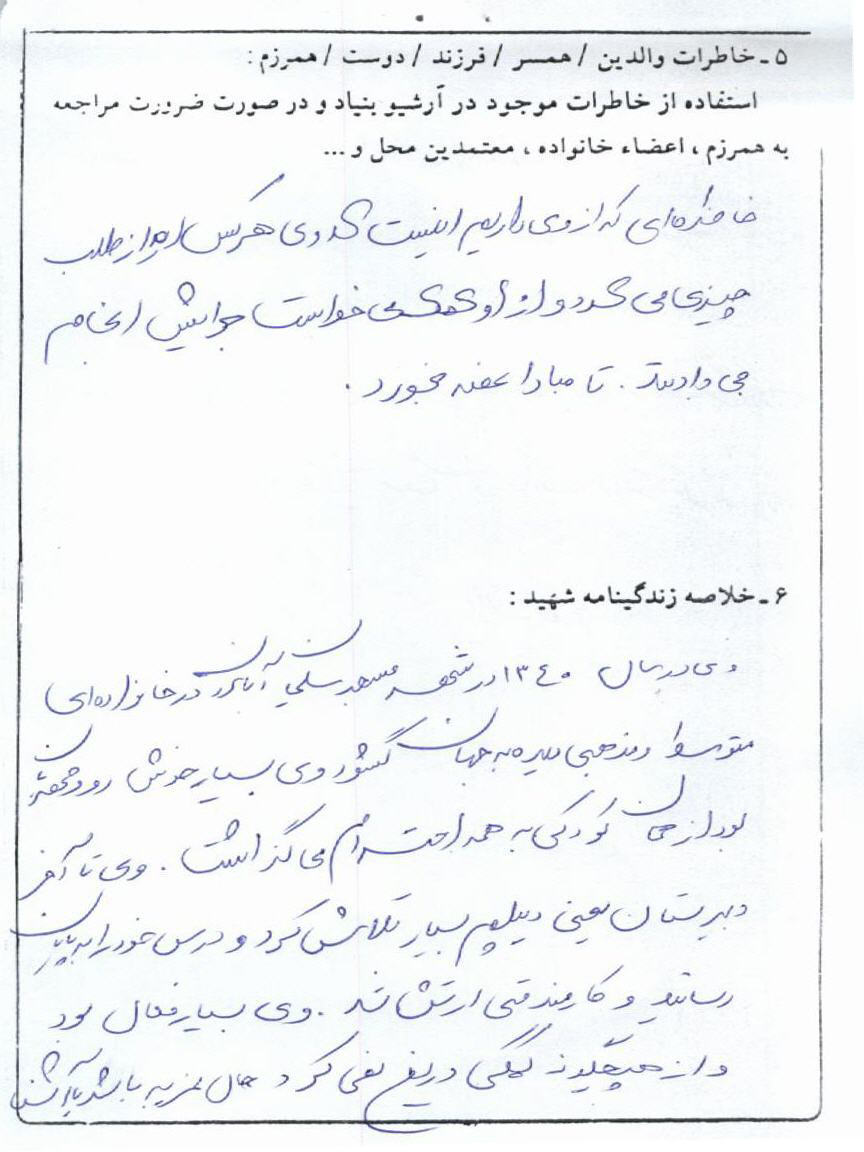 ۵ ـ خاطرات والدین / همسر / فرزند / دوست / همرزم :
استفاده از خاطرات موجود در آرشیو بنیاد و در صورت ضرورت مراجعه
به همرزم ، اعضاء خانواده ، معتمدین محل و ...
خاطره‌ای که از وی داریم اینست که وی هرکس از طلب
چیزی می کرد و از او کمک می خواست برایش انجام
می دادند . تا مبادا غصه بخورد .
۶ ـ خلاصه زندگینامه شهید :
وی در سال ۱۳٤۰ در شهر مسجد سلیمان در خانواده‌ای
متوسط و مذهبی دیده به جهان گشود وی بسیار خوش رو و
بود از همان کودکی به همه احترام می گذاشت . وی تا آخر
دبیرستان یعنی دیپلم بسیار تلاش کرد و درس خود را به پایان
رسانید و کارمند فنی ارتش شد . وی بسیار فعال بود
و از هیچگونه کمکی دریغ نمی کرد حال غریبه باشد یا آشنا